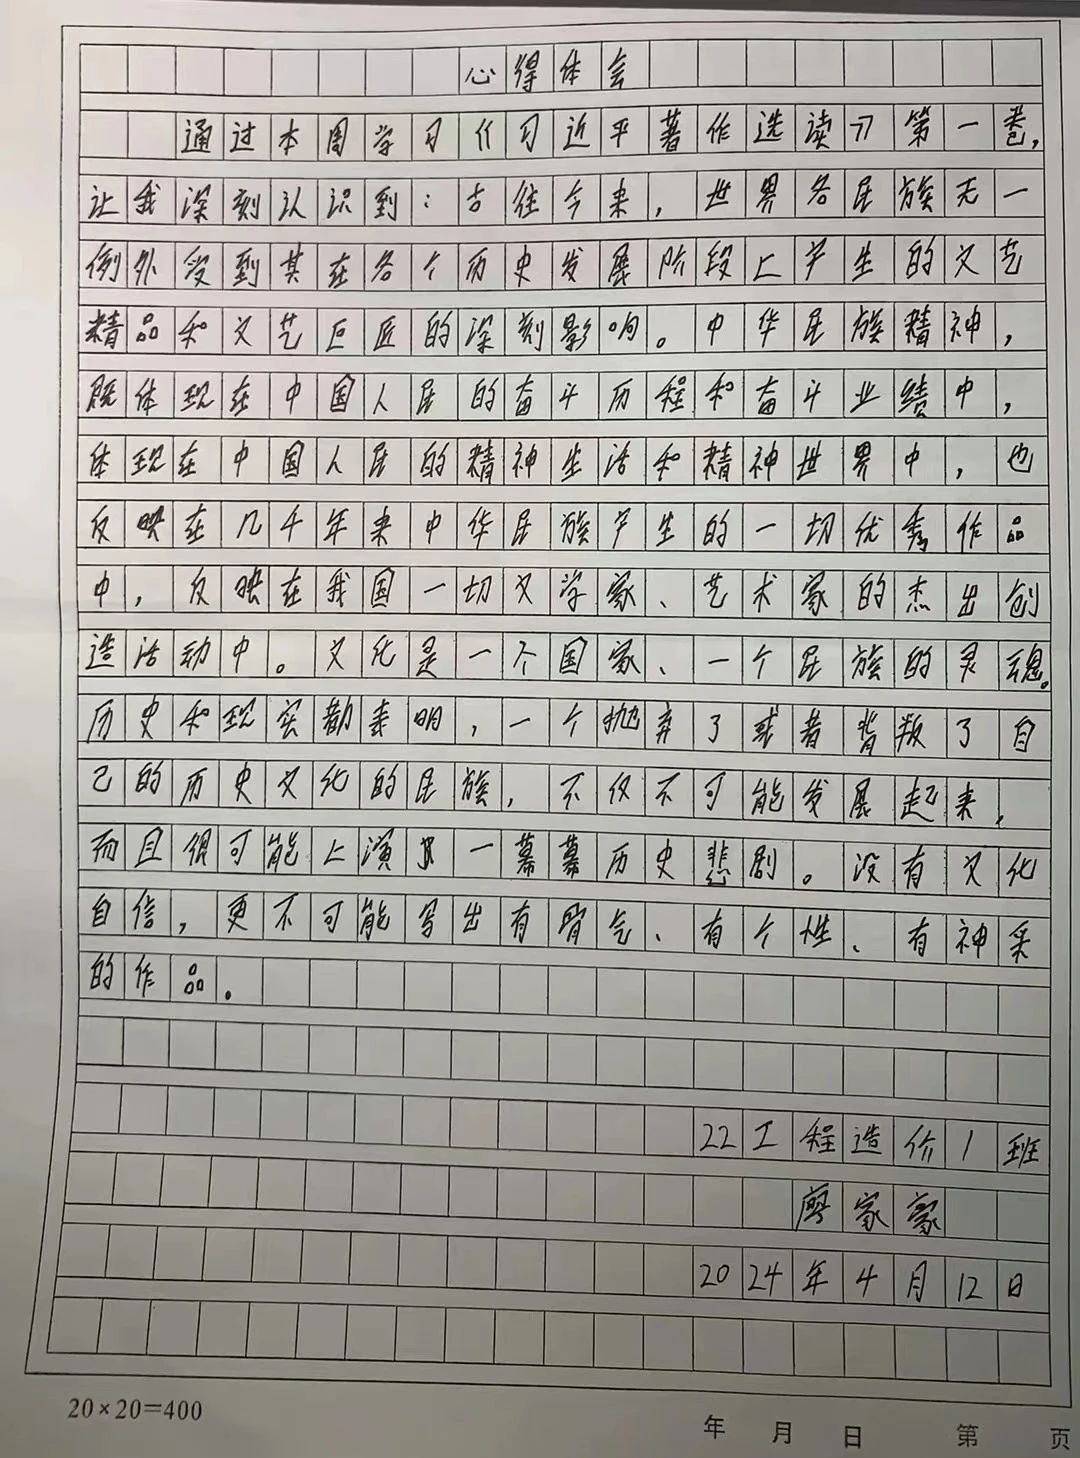 心得体会
通过本周学习《习近平著作选读》第一卷，
让我深刻认识到：古往今来，世界各民族无一
例外受到其在各个历史发展阶段上产生的文艺
精品和文艺巨匠的深刻影响。中华民族精神，
既体现在中国人民的奋斗历程和奋斗业绩中，
体现在中国人民的精神生活和精神世界中，也
反映在几千年来中华民族产生的一切优秀作品
中，反映在我国一切文学家、艺术家的杰出创
造活动中。文化是一个国家、一个民族的灵魂。
历史和现实都表明，一个抛弃了或者背叛了自
己的历史文化的民族，不仅不可能发展起来，
而且很可能上演一幕幕历史悲剧。没有文化
自信，更不可能写出有骨气、有个性、有神采
的作品。
22工程造价1班
廖家豪
2024年4月12日
20×20=400
年 月 日 第 页